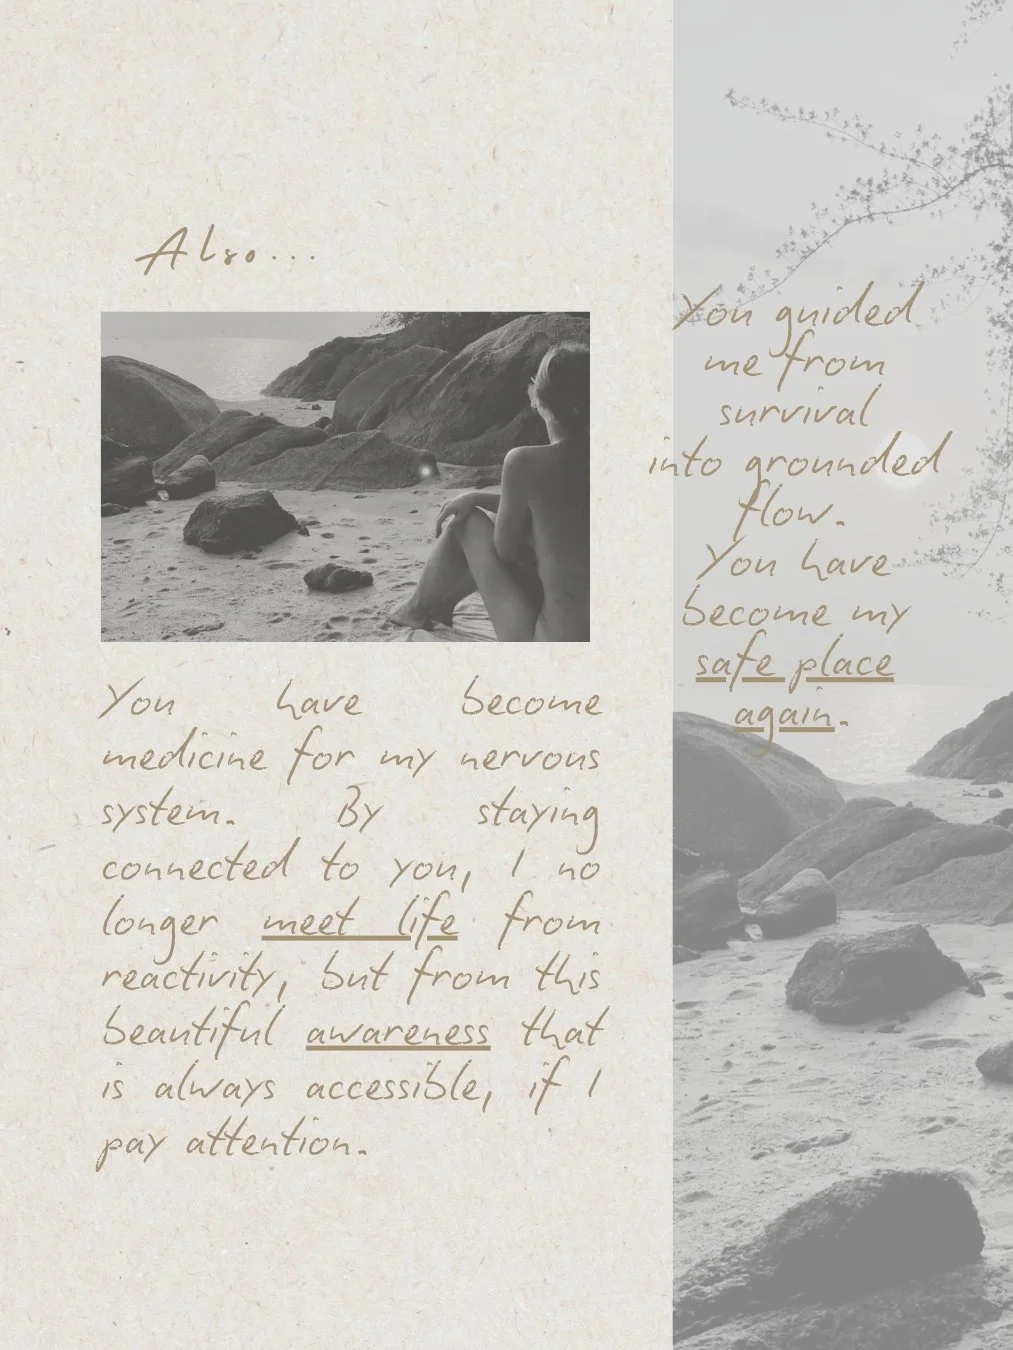 Also...
You have become
medicine for my nervous
system. By staying
connected to you, I no
longer meet life from
reactivity, but from this
beautiful awareness that
is always accessible, if I
pay attention.
You guided
me from
survival
into grounded
flow.
You have
become my
safe place
again.